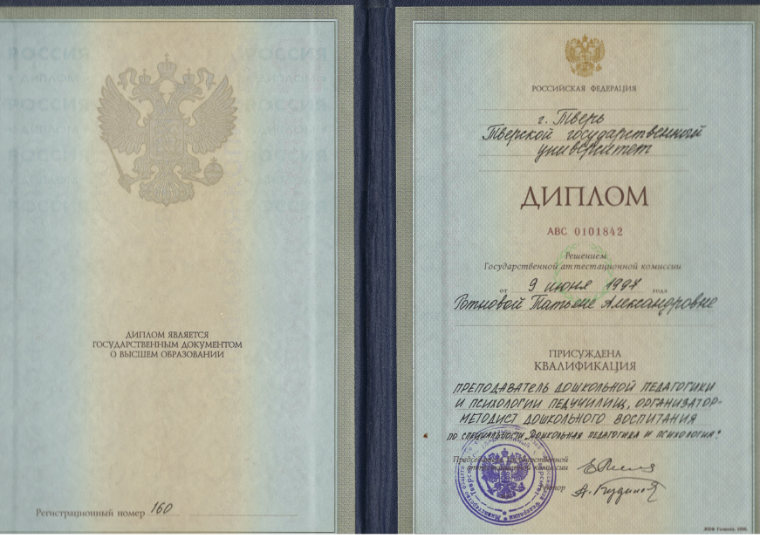 РОССИЯ
РОССИЯ
РОССИЯ
РОССИЯ
ДИПЛОМ ЯВЛЯЕТСЯ
ГОСУДАРСТВЕННЫМ ДОКУМЕНТОМ
О ВЫСШЕМ ОБРАЗОВАНИИ
Регистрационный номер 160
РОССИЙСКАЯ ФЕДЕРАЦИЯ
г. Тверь
Тверской государственный
университет
ДИПЛОМ
АВС 0101842
Решением
Государственной аттестационной комиссии
от 9 июня 1997 года
Татьяне Александровне
ПРИСУЖДЕНА
КВАЛИФИКАЦИЯ
ПРЕПОДАВАТЕЛЬ ДОШКОЛЬНОЙ ПЕДАГОГИКИ
И ПСИХОЛОГИИ ПЕДУЧИЛИЩ, ОРГАНИЗАТОР-
МЕТОДИСТ ДОШКОЛЬНОГО ВОСПИТАНИЯ
ПО СПЕЦИАЛЬНОСТИ „ДОШКОЛЬНАЯ ПЕДАГОГИКА И ПСИХОЛОГИЯ"
комиссии